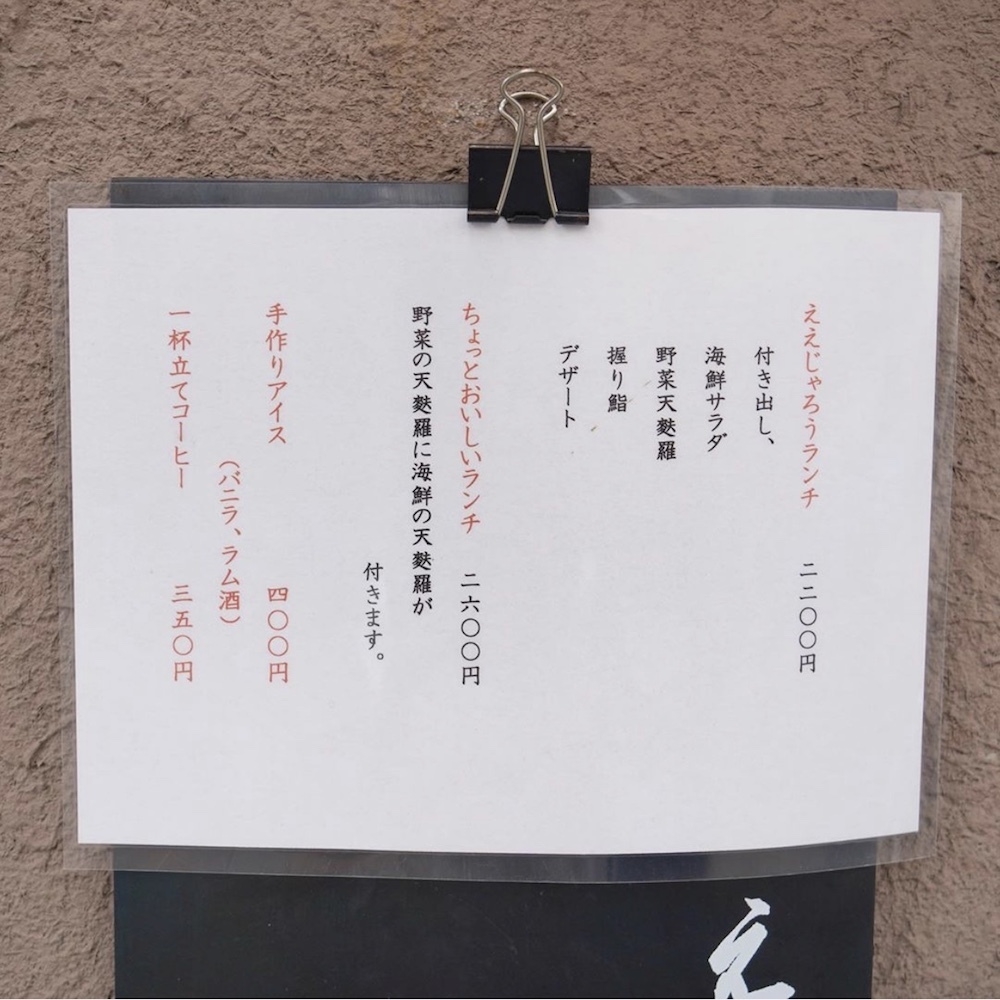 ええじゃろうランチ 二二〇〇円
付き出し、
海鮮サラダ
野菜天麩羅
握り鮨
デザート
ちょっとおいしいランチ 二六〇〇円
野菜の天麩羅に海鮮の天麩羅が
付きます。
手作りアイス 四〇〇円
（バニラ、ラム酒）
一杯立てコーヒー 三五〇円
え